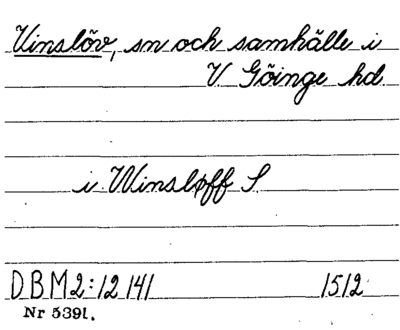 Vinslöv, sn och samhälle i
V. Göinge hd.
i Winsløff S
DBM 2:12 141 1512
Nr 5391.